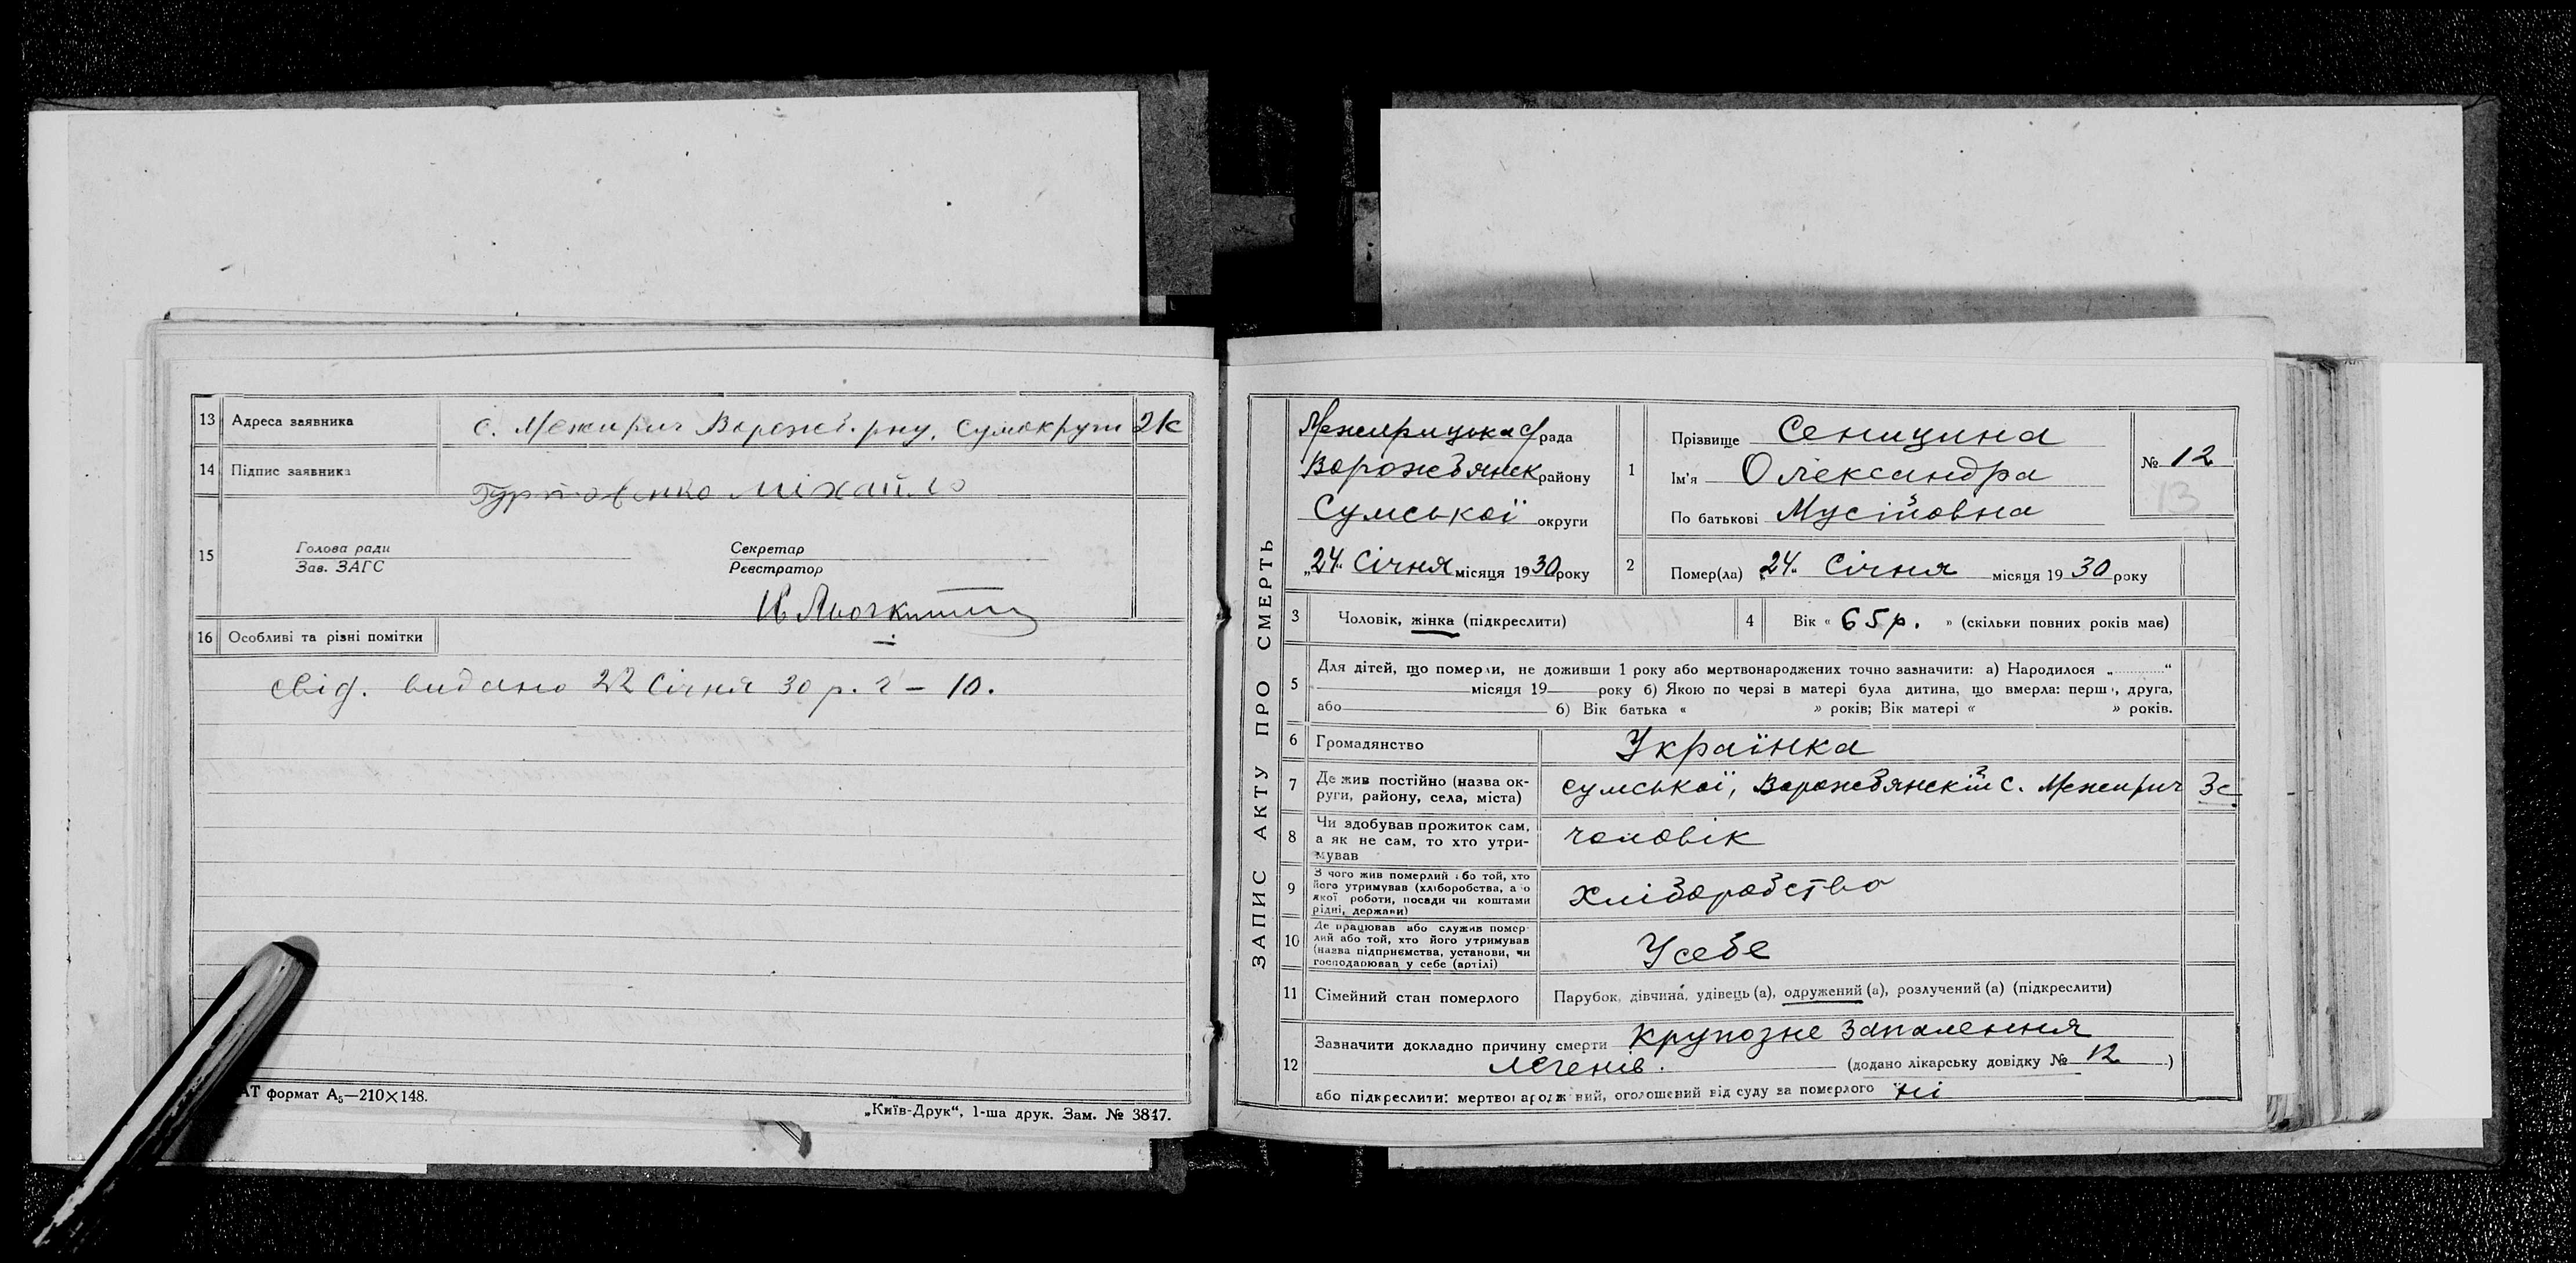 13 Адреса заявника с. Межирич Ворожб. рну. Сумокруги 2к
14 Підпис заявника
Гуртовенко Міхайло
15 Голова ради Секретар
Зав. ЗАГС Реєстратор
16 Особливі та різні помітки
свід. видано 22 Січня 30 р. г – 10.
АТ формат А₅—210×148.
„Київ-Друк“, 1-ша друк. Зам. № 3847.
ЗАПИС АКТУ ПРО СМЕРТЬ
Межирицька с/рада
Ворожбянск району
Сумської округи
„24“ Січня місяця 1930 року
1 Прізвище Сеницина
Ім'я Олександра
По батькові Мусійовна
№ 12
13
2 Помер(ла) „24“ Січня місяця 1930 року
3 Чоловік, жінка (підкреслити)
4 Вік « 65 р. » (скільки повних років має)
5 Для дітей, що померли, не доживши 1 року або мертвонароджених точно зазначити: а) Народилося „ “
місяця 19 року б) Якою по черзі в матері була дитина, що вмерла: перш , друга,
або б) Вік батька « » років; Вік матері « » років.
6 Громадянство Українка
7 Де жив постійно (назва ок-
руги, району, села, міста) Сумської, Ворожбянскій с. Межирич 3с
8 Чи здобував прожиток сам,
а як не сам, то хто утри-
мував чоловік
9 З чого жив померлий або той, хто
його утримував (хліборобства, а о
якої роботи, посади чи коштами
рідні, держави) Хліборобство
10 Де працював або служив помер-
лий або той, хто його утримував
(назва підприємства, установи, чи
господарював у себе (артілі) У себе
11 Сімейний стан померлого Парубок, дівчина, удівець (а), одружений (а), розлучений (а) (підкреслити)
12 Зазначити докладно причину смерти Крупозне запалення
легенів. (додано лікарську довідку № 12 )
або підкреслити: мертвонароджений, оголошений від суду за померлого ні